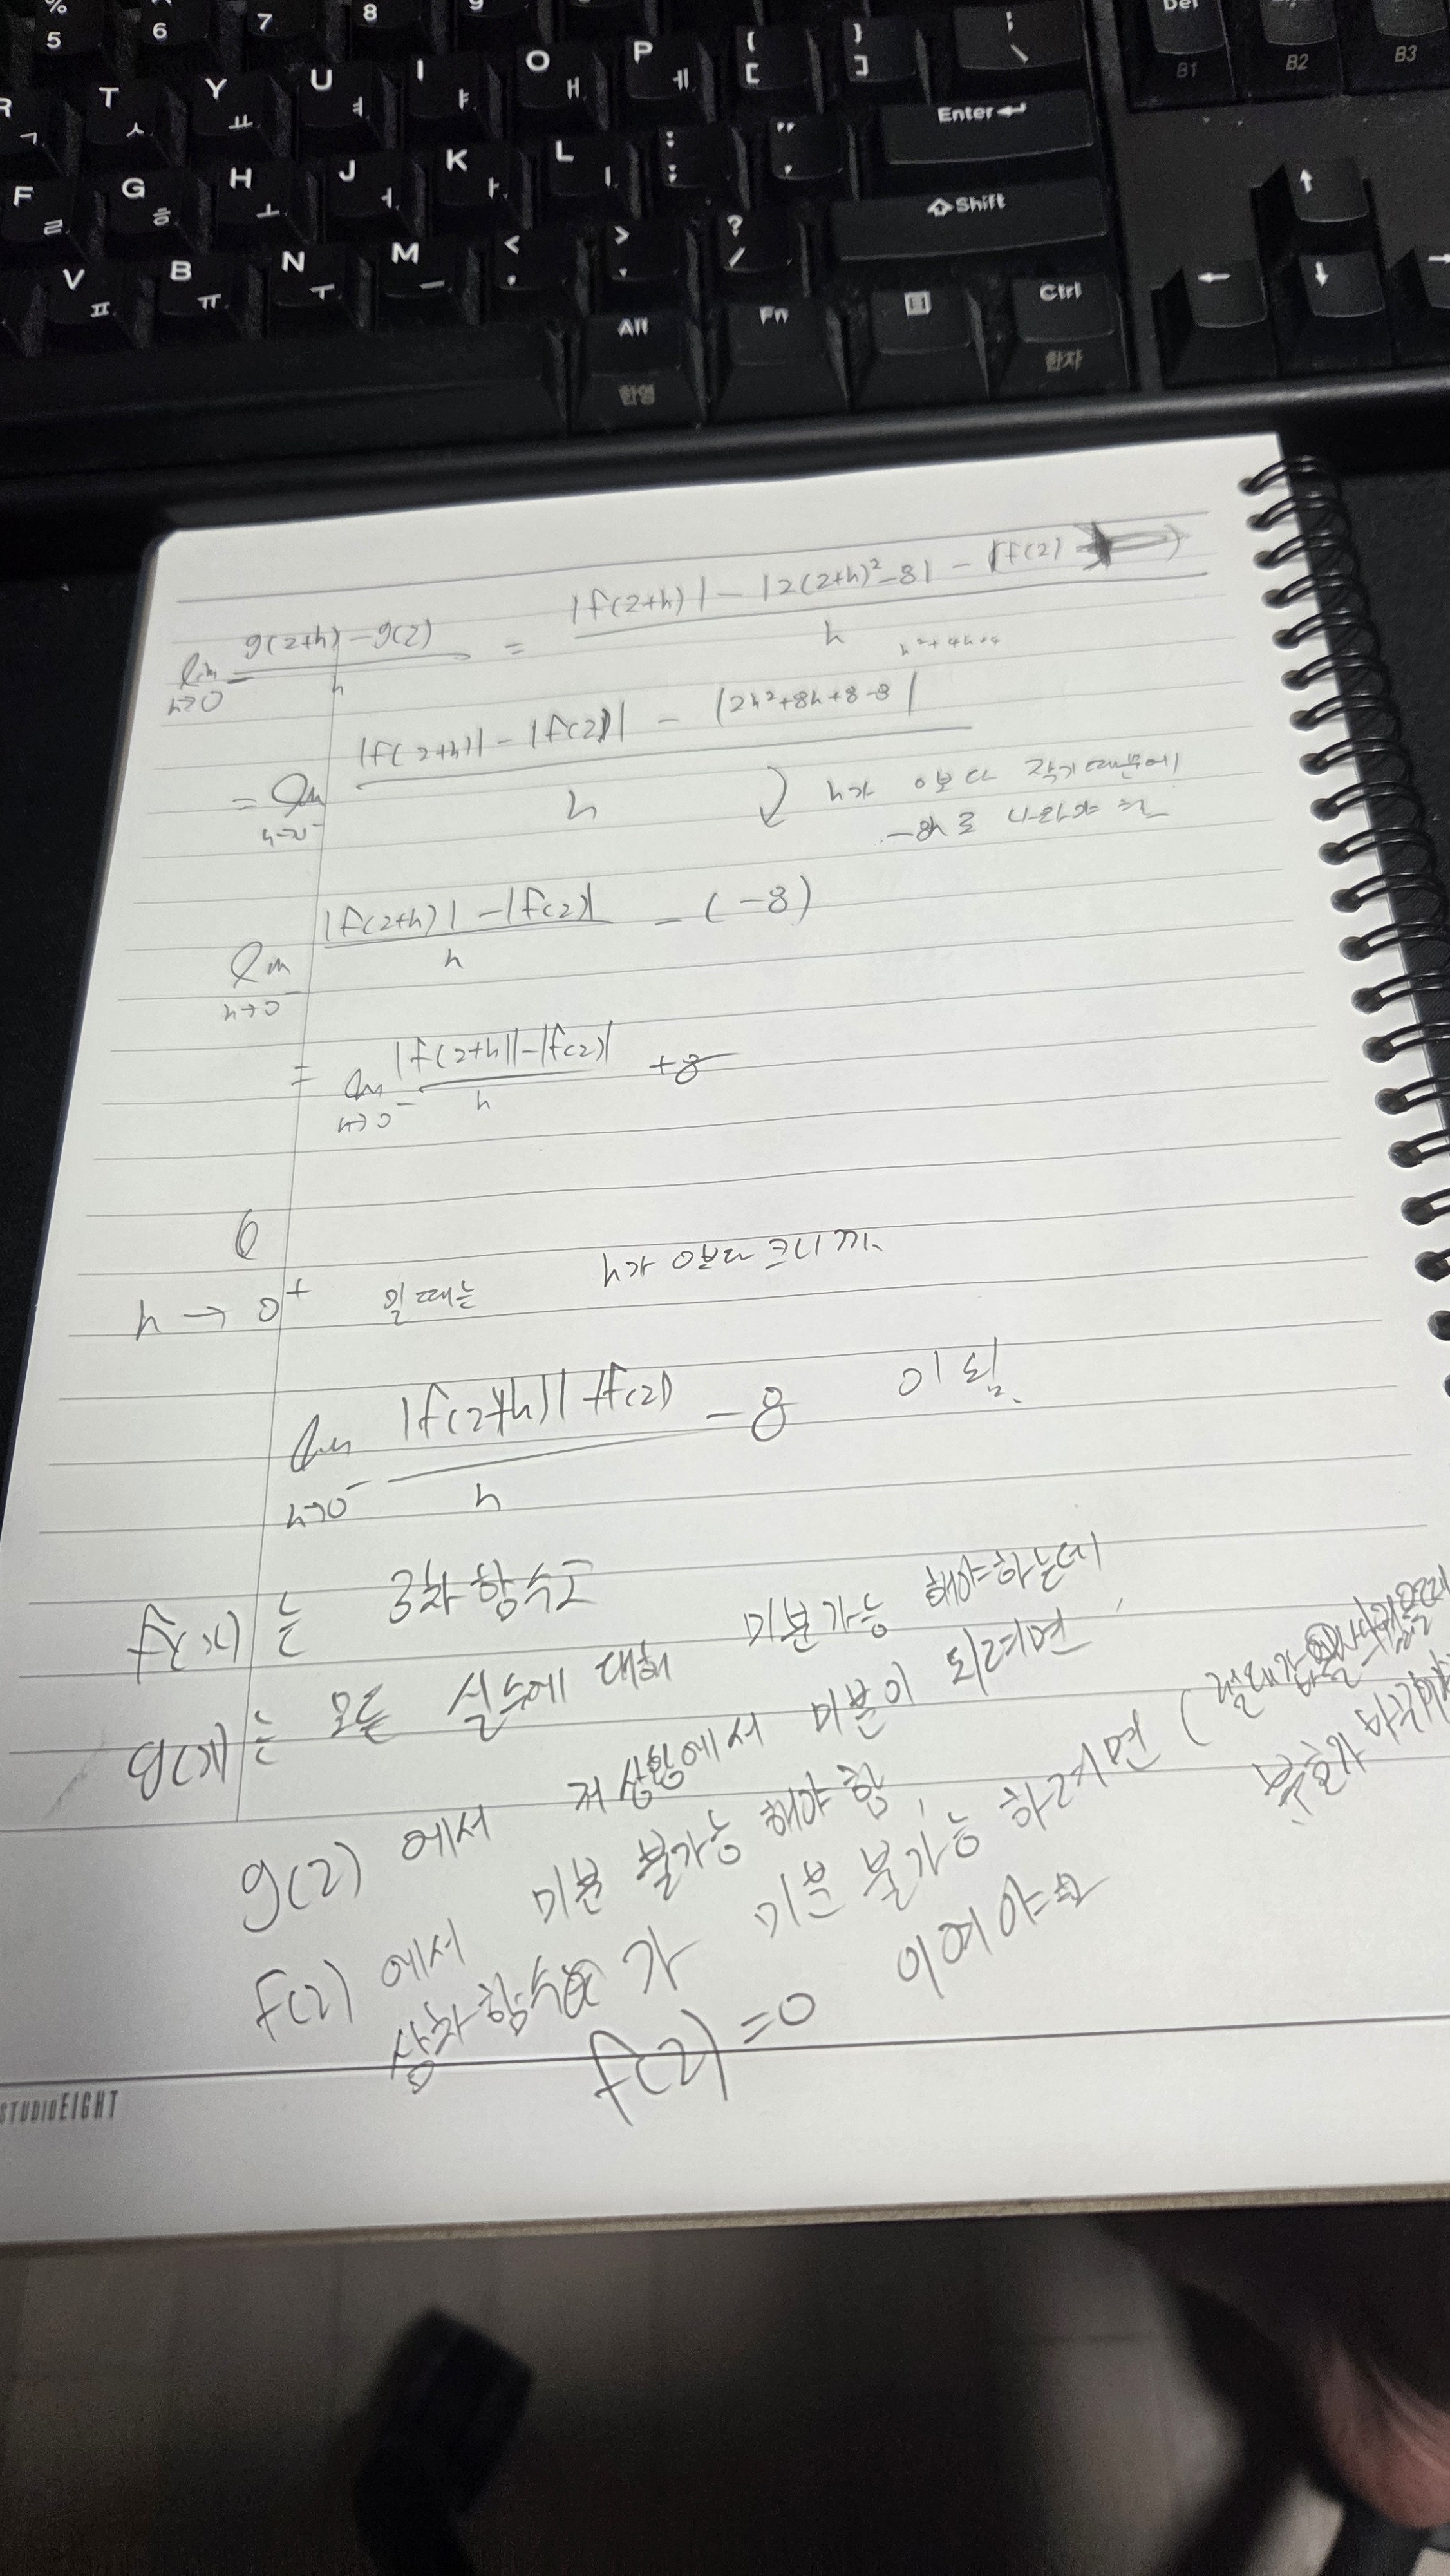 % 5
6
7
8
9
R ㄱ
T ㅅ
Y ㅛ
U ㅕ
I ㅑ
O ㅐ
P ㅔ
{ [
} ]
| \
Del
B1
B2
B3
F ㄹ
G ㅎ
H ㅗ
J ㅓ
K ㅏ
L ㅣ
: ;
" '
Enter
V ㅍ
B ㅠ
N ㅜ
M ㅡ
< ,
> .
? /
Shift
Alt 한영
Fn
Ctrl 한자
lim h→0 g(2+h) - g(2) / h = |f(2+h)| - |2(2+h)²-8| - |f(2) / h
h²+4h+4
= lim h→0⁻ |f(2+h)| - |f(2)| - |2h²+8h+8-8| / h
h가 0보다 작기 때문에
-8h로 나와야 함
lim h→0⁻ |f(2+h)| - |f(2)| / h - (-8)
= lim h→0⁻ |f(2+h)| - |f(2)| / h +8
h → 0⁺ 일 때는 h가 0보다 크니까
lim h→0⁻ |f(2+h)| - |f(2)| / h - 8 이 됨.
f(x)는 3차함수고
g(x)는 모든 실수에 대해 미분가능 해야하는데
g(2) 에서 저 상황에서 미분이 되려면
f(2) 에서 미분 불가능 해야 함,
삼차함수가 미분 불가능 하려면 (절대값을
부호가 바뀌
f(2)=0 이여야
STUDIOEIGHT